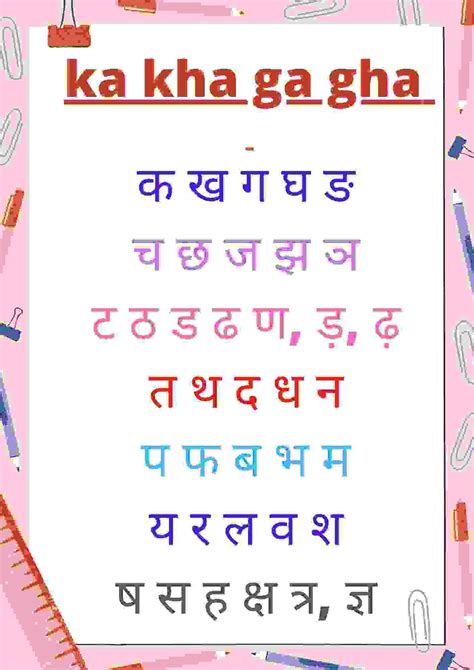 ka kha ga gha
क ख ग घ ङ
च छ ज झ ञ
ट ठ ड ढ ण, ड़, ढ़
त थ द ध न
प फ ब भ म
य र ल व श
ष स ह क्ष त्र, ज्ञ